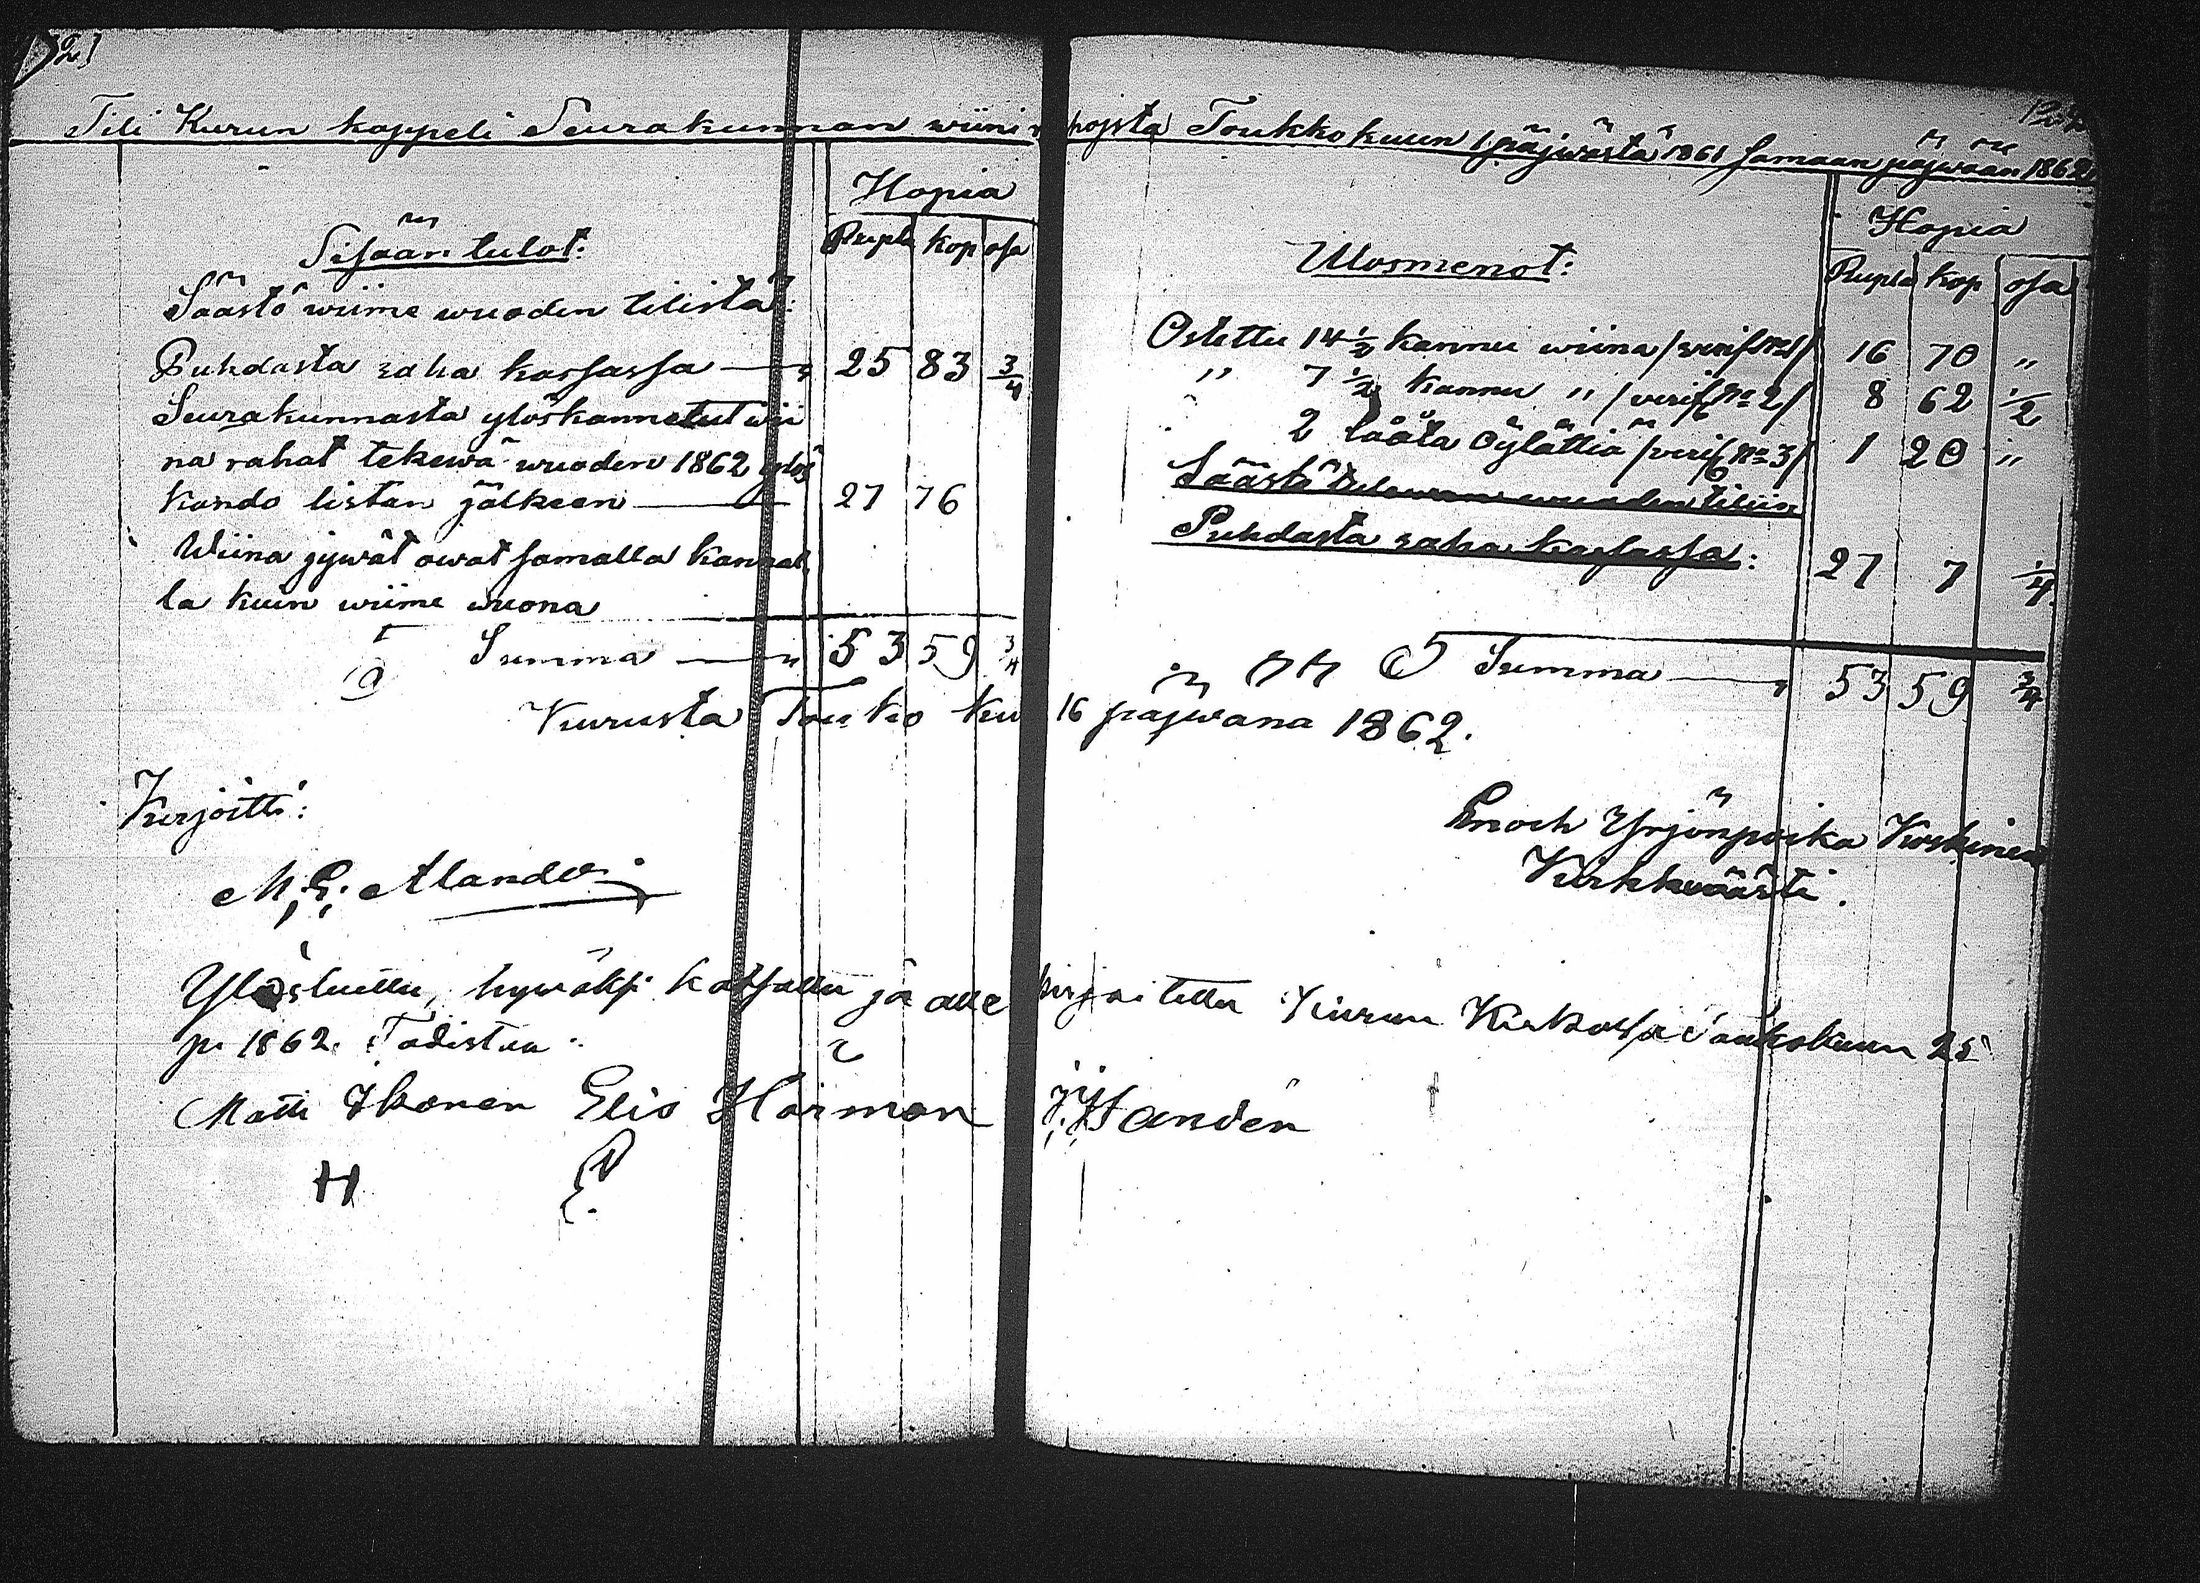 Tili Kurun kappeli Seurakunnan wiini pojsta Toukkokuun 1 päjwästä 1861 samaan päjwään 1862
Hopia
Sisään tulot:
Rupla kop osa
Säästö wiime wuoden tilistä:
Puhdasta raha kassassa 25 83 3/4
Seurakunnasta ylöskannetut wii
na rahat tekewä wuoden 1862 ylös
kando listan jälkeen 27 76
Wiina jywät owat samalla kannal
la kuin wiime wuona
Summa 53 59 3/4
Hopia
Ulosmenot:
Rupla kop osa
Ostettu 14 1/2 kannu wiina /verif No 1/ 16 70 "
" 7 1/2 kannu " /verif No 2/ 8 62 1/2
2 lååta öylättiä /verif No 3/ 1 20 "
Säästö tulewan wuoden tiliin
Puhdasta raha kassassa: 27 7 1/4
Summa 53 59 3/4
Kurusta Touko ku 16 päjwänä 1862.
Kirjoitti:
M. E. Alander
Enoch Yrjönpoika Koskinen
Kirkkwäästi.
Ylösluettu, hywäksi katsottu ja alle kirjoitettu Kurun Kirkossa Toukokuun 25
p. 1862. Todistaa:
Matti Ikonen Elis Härmon J. Handén
H